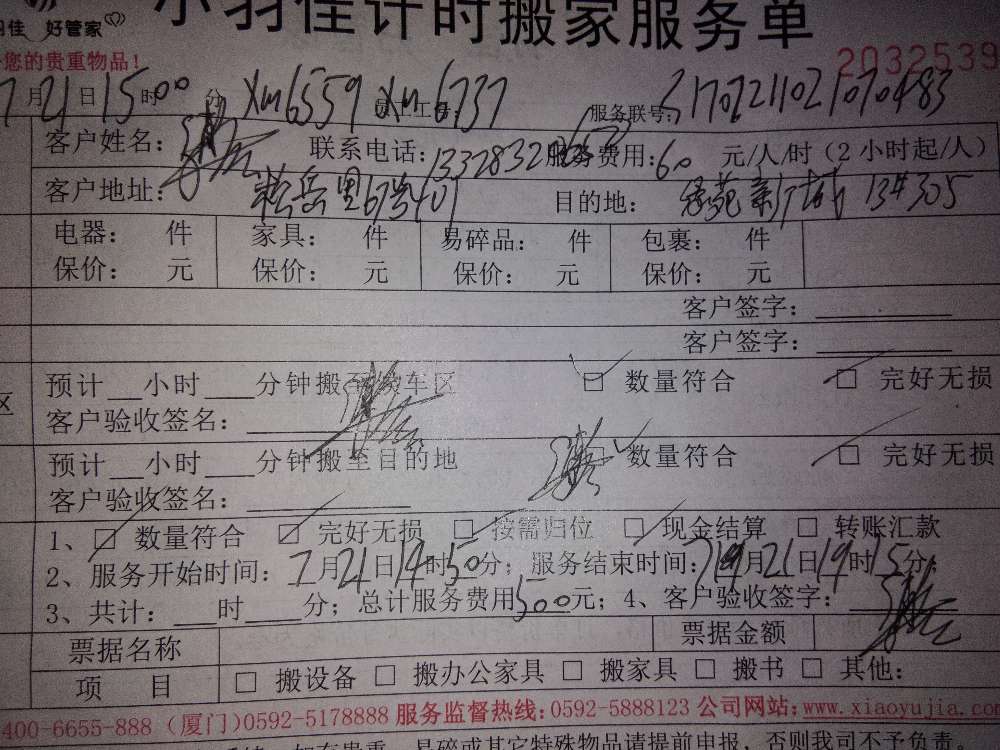 小羽佳计时搬家服务单
羽佳 好管家
您的贵重物品！ 2032539
7月21日15时00分 Xm6559 员工工号: Xm6737 服务联号:
客户姓名: 联系电话: 服务费用:60元/人/时（2小时起/人）
客户地址: 松岳里67号401 目的地: 绿苑新城 13#305
电器: 件 家具: 件 易碎品: 件 包裹: 件
保价: 元 保价: 元 保价: 元 保价: 元
客户签字:
客户签字:
预计 小时 分钟搬至 车区 数量符合 完好无损
区
客户验收签名:
预计 小时 分钟搬至目的地 数量符合 完好无损
客户验收签名:
1、 数量符合 完好无损 按需归位 现金结算 转账汇款
2、服务开始时间: 7月21日14时50分; 服务结束时间: 7月21日19时15分;
3、共计: 时 分; 总计服务费用500元; 4、客户验收签字:
票据名称 票据金额
项 目 搬设备 搬办公家具 搬家具 搬书 其他:
400-6655-888（厦门)0592-5178888 服务监督热线:0592-5888123 公司网站:www.xiaoyujia.com
如有贵重、易碎或其它特殊物品请提前申报，否则我司不予负责。